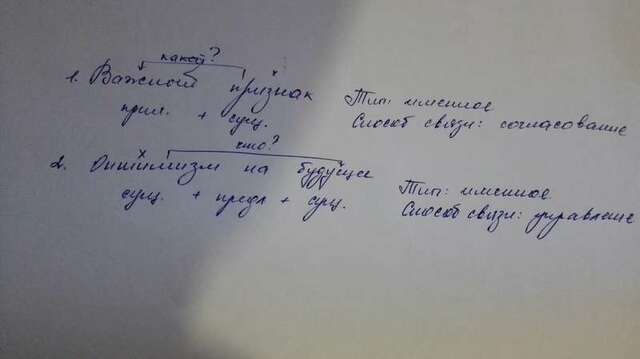 какой?
1. Важный признак
прил. + сущ.
Тип: именное
Способ связи: согласование
что?
2. Оптимизм на будущее
сущ. + предл + сущ.
Тип: именное
Способ связи: управление